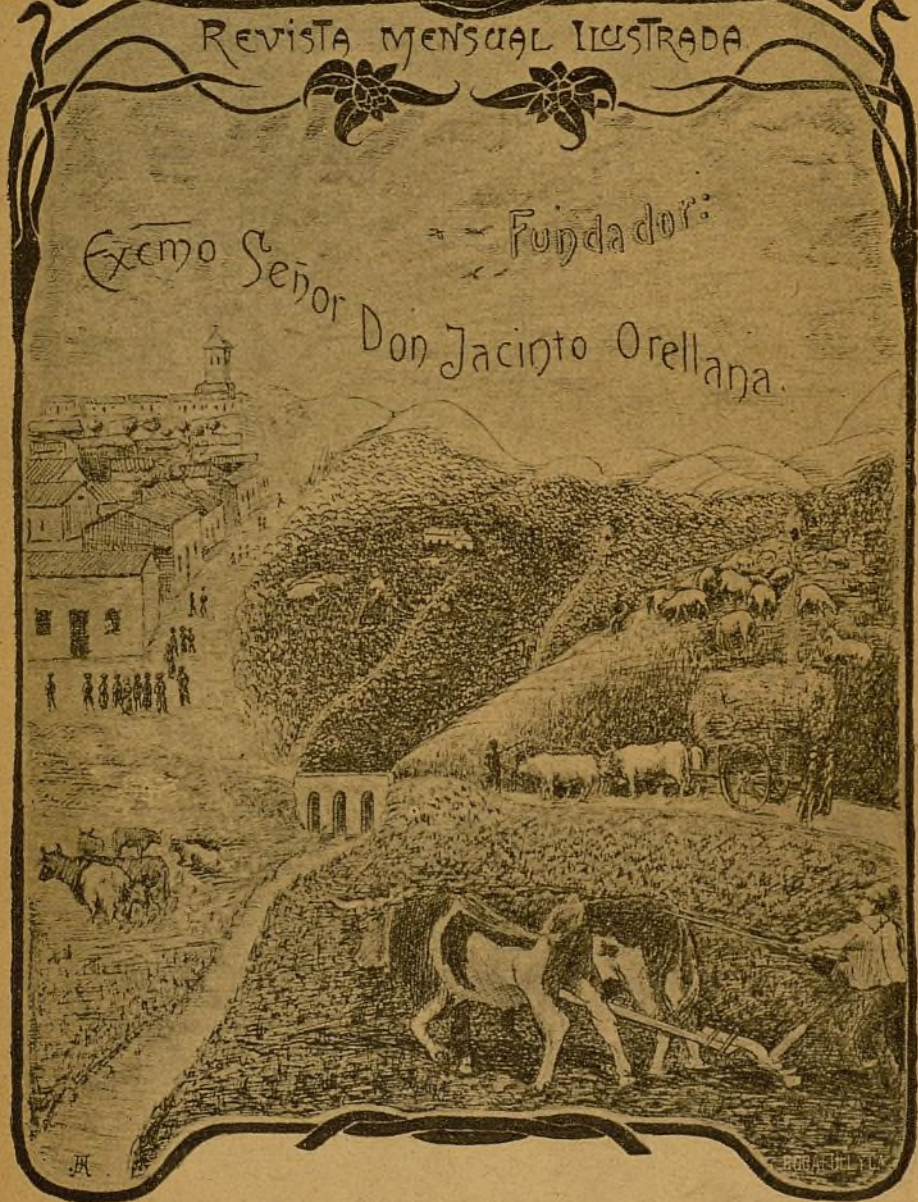 REVISTA MENSUAL ILUSTRADA
Fundador:
Excmo Señor Don Jacinto Orellana.